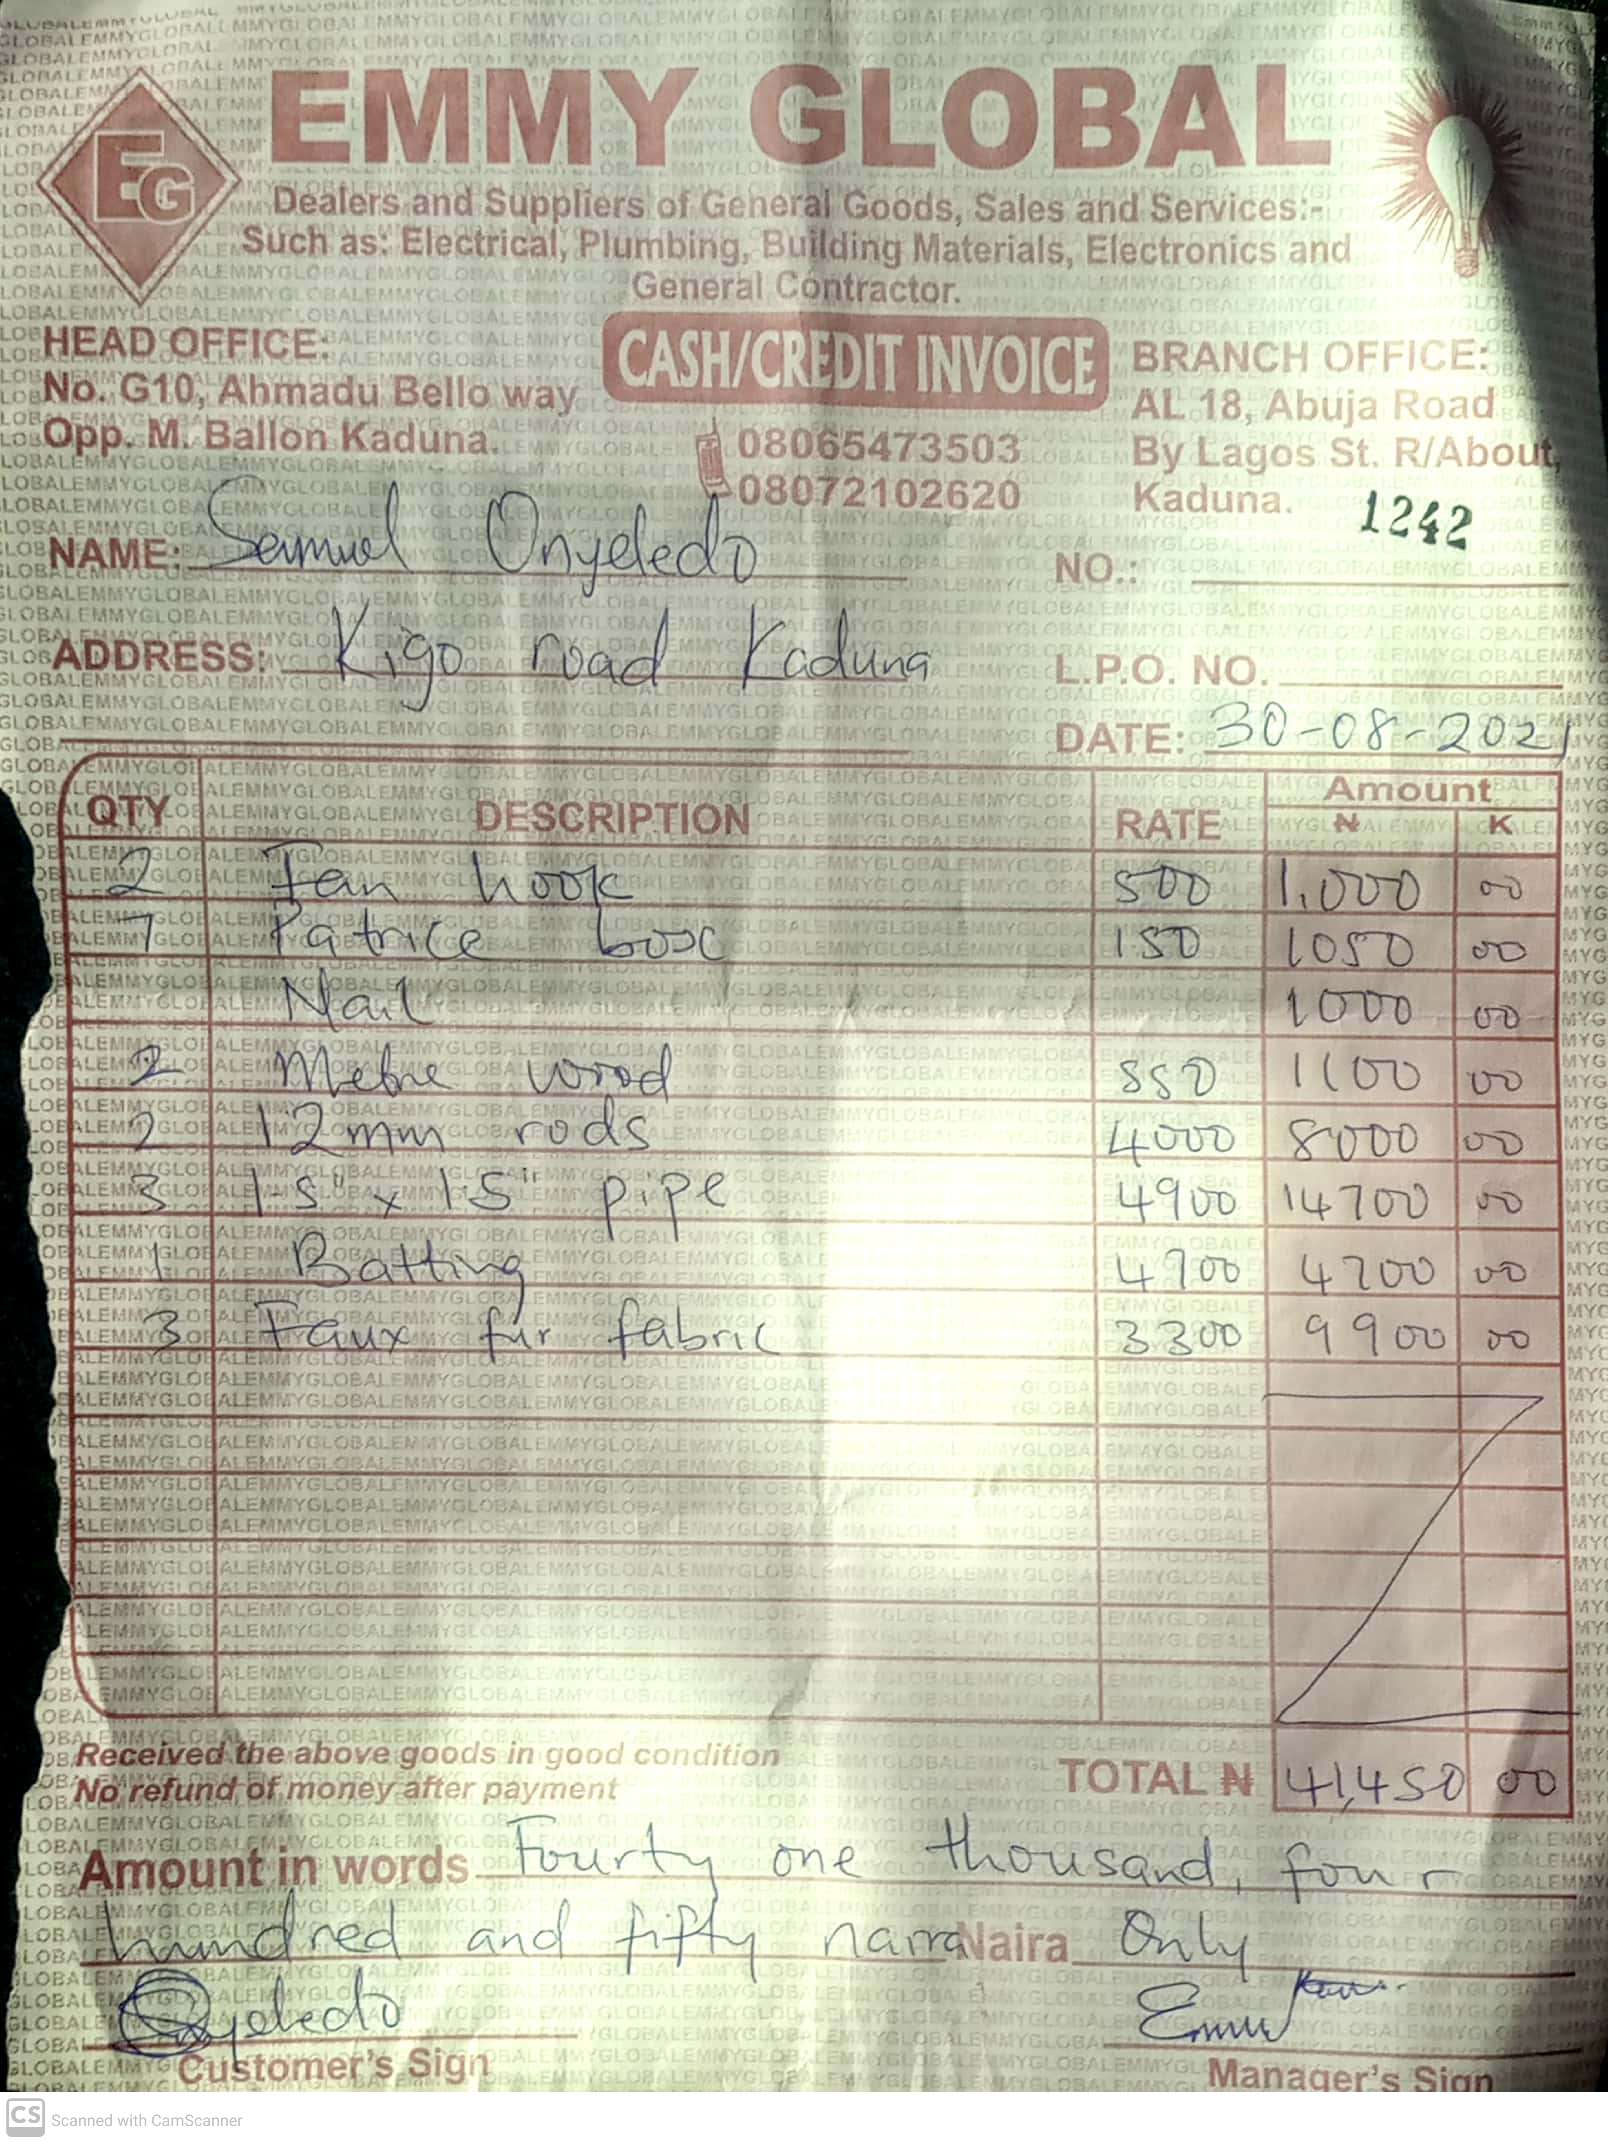 EMMY GLOBAL
EG
Dealers and Suppliers of General Goods, Sales and Services:-
Such as: Electrical, Plumbing, Building Materials, Electronics and
General Contractor.
HEAD OFFICE:
No. G10, Ahmadu Bello way
Opp. M. Ballon Kaduna.
CASH/CREDIT INVOICE
08065473503
08072102620
BRANCH OFFICE:
AL 18, Abuja Road
By Lagos St. R/About,
Kaduna.
1242
NAME: Samuel Onyeledo
NO.:
ADDRESS: Kigo road Kaduna
L.P.O. NO.
DATE: 30-08-2021
QTY DESCRIPTION RATE Amount ₦ K
2 Fan hook 500 1,000 00
7 Patrice box 150 1050 00
Nail 1000 00
2 Metre wood 550 1100 00
2 12mm rods 4000 8000 00
3 1.5" x 1.5" pipe 4900 14700 00
1 Batting 4700 4700 00
3 Faux fur fabric 3300 9900 00
Received the above goods in good condition
No refund of money after payment
TOTAL ₦ 41,450 00
Amount in words Fourty one thousand, four
hundred and fifty naira Naira Only
Onyeledo
Customer's Sign
Manager's Sign
CS Scanned with CamScanner